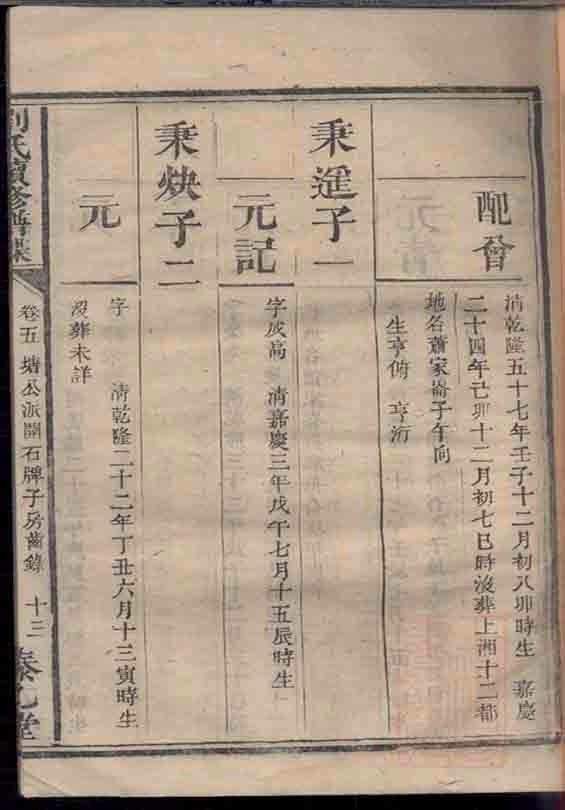 配曾
清乾隆五十七年壬子十二月初八卯時生 嘉慶
二十四年己卯十二月初七巳時沒葬上湘十二都
地名蕭家崙子午向
生亨脩 亨沂
秉暹子一
元記
字成高 清嘉慶三年戊午七月十五辰時生
秉炔子二
元
字 清乾隆二十二年丁丑六月十三寅時生
沒葬未詳
劉氏續修譜
卷五 塘公派開石牌子房齒錄 十三
堂